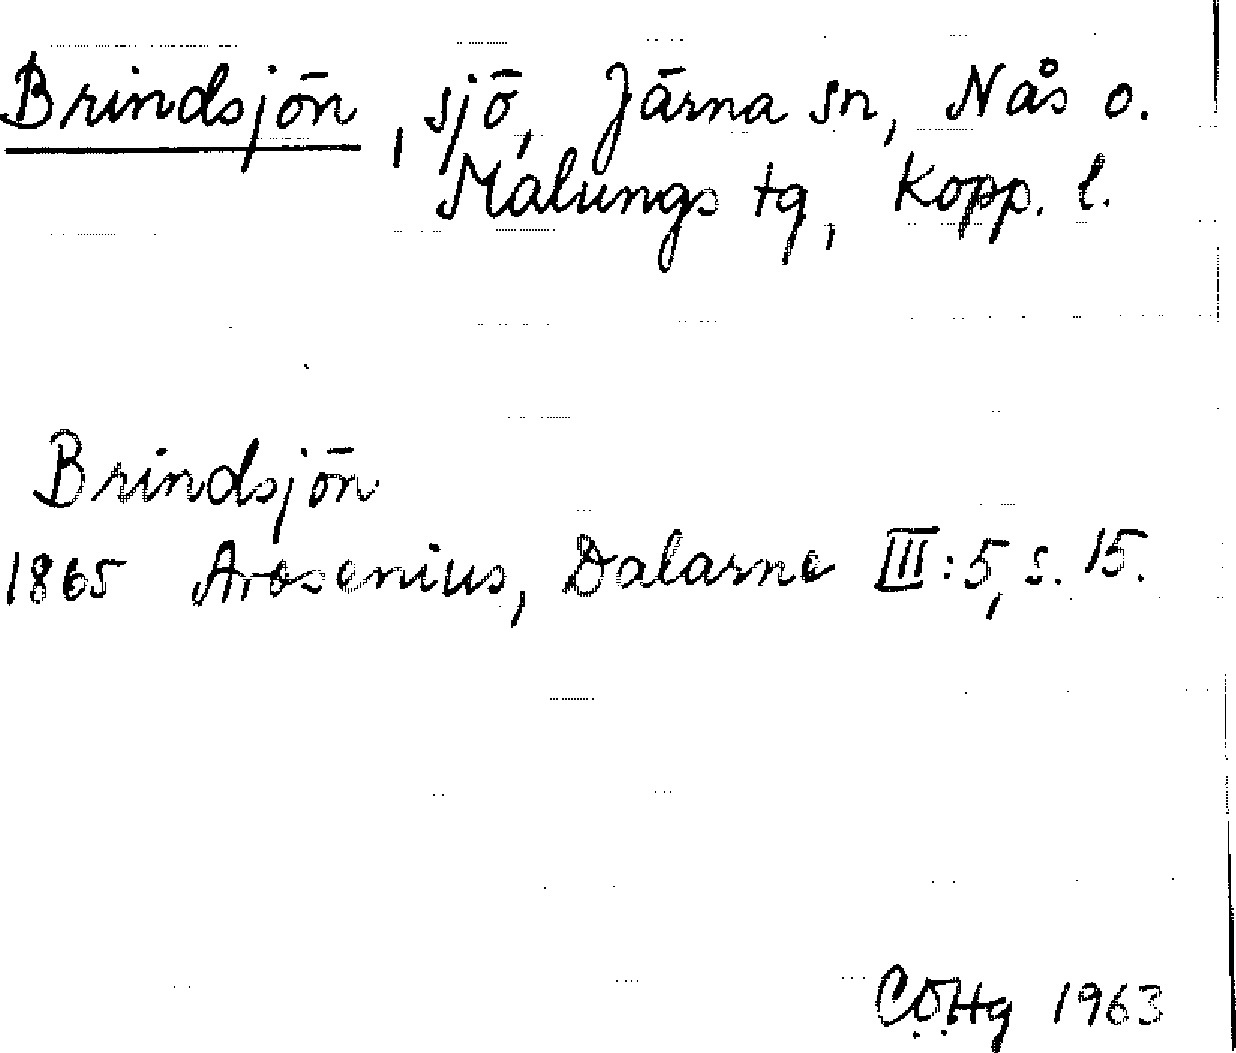 Brindsjön, sjö, Järna sn, Nås o.
Malungs tg, Kopp. l.
Brindsjön
1865 Arosenius, Dalarne III:5, s. 15.
C.Ö.Hg 1963